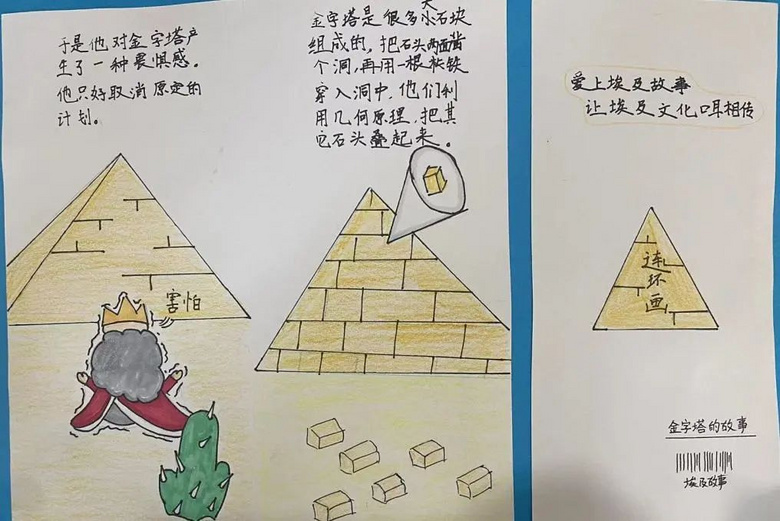 于是他对金字塔产
生了一种畏惧感。
他只好取消原定的
计划。
害怕
金字塔是很多大小石块
组成的,把石头两面凿
个洞,再用一根
穿入洞中,他们利
用几何原理,把其
它石头叠起来。
爱上埃及故事
让埃及文化口耳相传
连
环
画
金字塔的故事
埃及故事